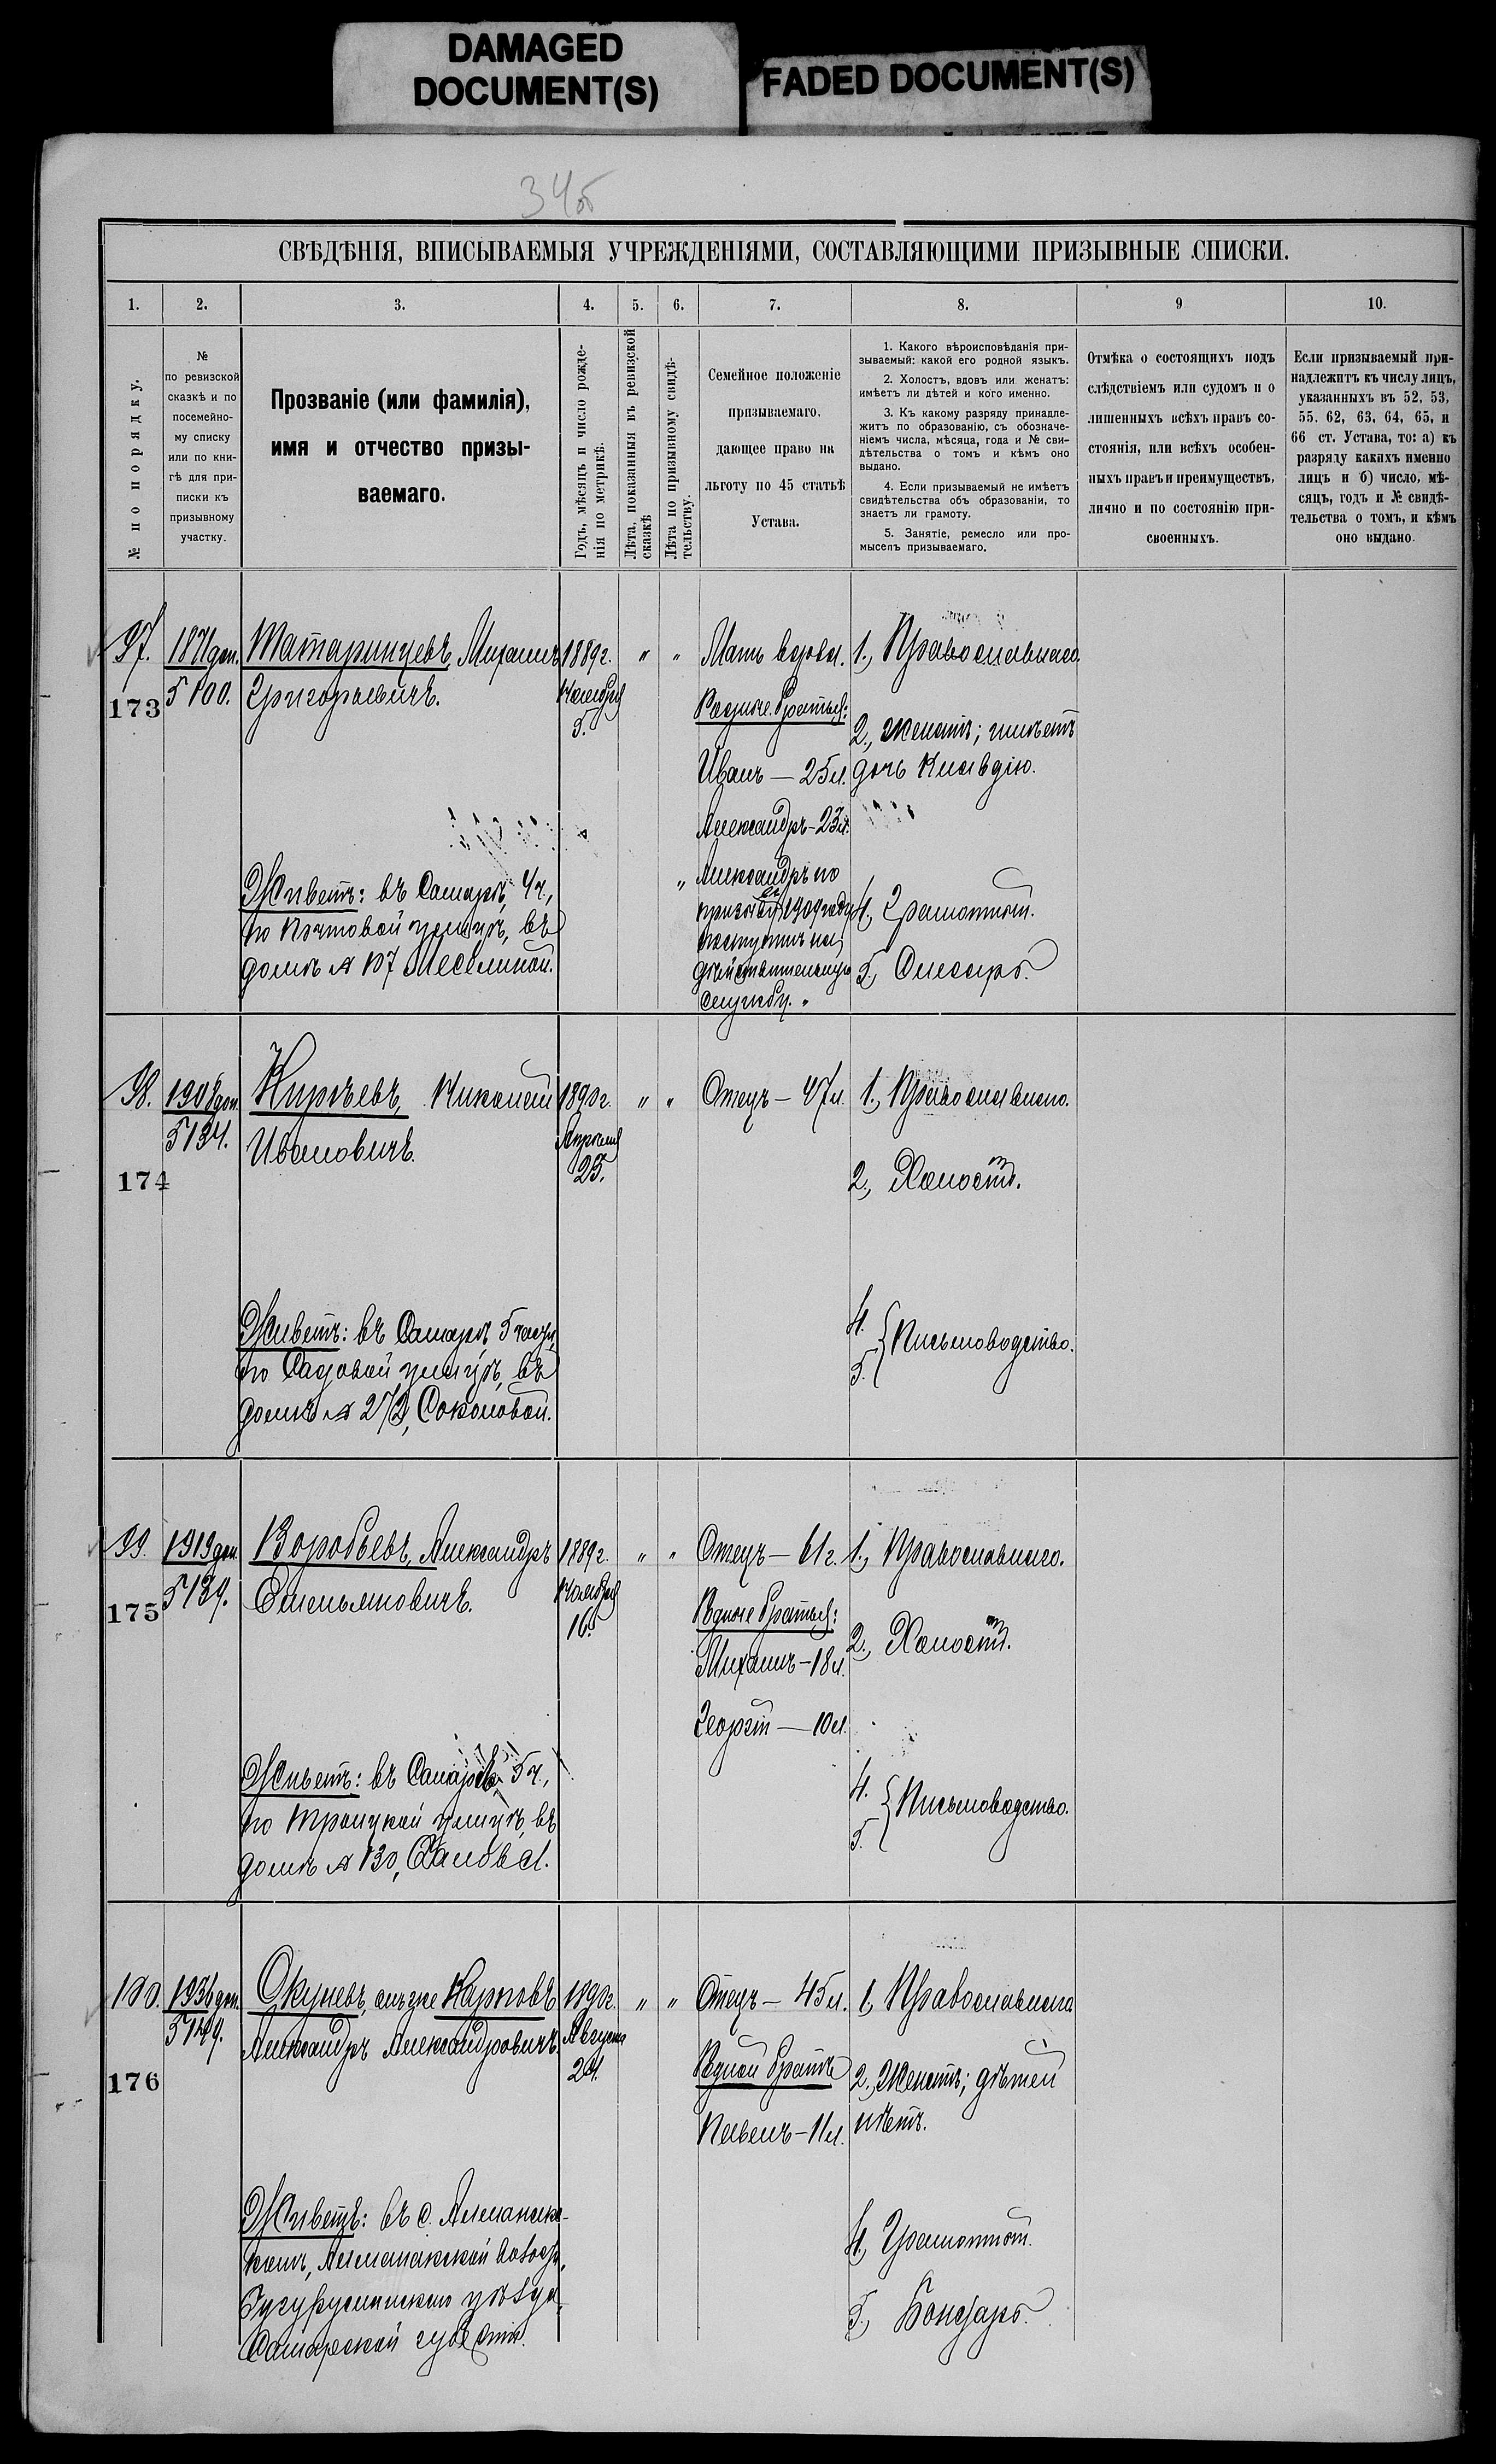 DAMAGED
DOCUMENT(S)
FADED DOCUMENT(S)
34об
СВѢДѢНІЯ, ВПИСЫВАЕМЫЯ УЧРЕЖДЕНІЯМИ, СОСТАВЛЯЮЩИМИ ПРИЗЫВНЫЕ СПИСКИ.
1.
2.
3.
4.
5.
6.
7.
8.
9
10.
№ по порядку.
№
по ревизской
сказкѣ и по
посемейно-
му списку
или по кни-
гѣ для при-
писки къ
призывному
участку.
Прозваніе (или фамилія),
имя и отчество призы-
ваемаго.
Годъ, мѣсяцъ и число рожде-
нія по метрикѣ.
Лѣта, показанныя въ ревизской
сказкѣ
Лѣта по призывному свидѣ-
тельству.
Семейное положеніе
призываемаго,
дающее право на
льготу по 45 статьѣ
Устава.
1. Какого вѣроисповѣданія при-
зываемый: какой его родной языкъ.
2. Холостъ, вдовъ или женатъ:
имѣетъ ли дѣтей и кого именно.
3. Къ какому разряду принадле-
житъ по образованію, съ обозначе-
ніемъ числа, мѣсяца, года и № сви-
дѣтельства о томъ и кѣмъ оно
выдано.
4. Если призываемый не имѣетъ
свидѣтельства объ образованіи, то
знаетъ ли грамоту.
5. Занятіе, ремесло или про-
мыселъ призываемаго.
Отмѣка о состоящихъ подъ
слѣдствіемъ или судомъ и о
лишенныхъ всѣхъ правъ со-
стоянія, или всѣхъ особен-
ныхъ правъ и преимуществъ,
лично и по состоянію при-
своенныхъ.
Если призываемый при-
надлежитъ къ числу лицъ,
указанныхъ въ 52, 53,
55, 62, 63, 64, 65, и
66 ст. Устава, то: а) къ
разряду какихъ именно
лицъ и б) число, мѣ-
сяцъ, годъ и № свидѣ-
тельства о томъ, и кѣмъ
оно выдано.
97.
173
1871 доп.
5100.
Татаринцевъ, Михаилъ
Григорьевичъ.
Живетъ: въ Самарѣ, 4 ч.,
по Почтовой улицѣ, въ
домѣ № 107
1889 г.
Ноября
5.
"
"
Мать вдова.
Родные братья:
Иванъ — 25 л.
Александръ — 23 л.
"Александръ по
призыву въ 1909 году
поступилъ на
дѣйствительную
службу."
1., Православнаго.
2., Женатъ; имѣетъ
дочь Клавдію.
4., Грамотный.
5., Слесарь.
98.
174
1908 доп.
5134.
Кирѣевъ, Николай
Ивановичъ.
Живетъ: въ Самарѣ, 5 части,
по Садовой улицѣ, въ
домѣ № 272, Соколовой.
1890 г.
Апрѣля
25.
"
"
Отецъ — 47 л.
1., Православнаго.
2., Холостъ.
4.
5.
Письмоводство.
99.
175
1913 доп.
5139.
Воробьевъ, Александръ
Емельяновичъ.
Живетъ: въ Самарѣ, 5 ч.,
по Троицкой улицѣ, въ
домѣ № 130,
1889 г.
Ноября
16.
"
"
Отецъ — 61 г.
Родные братья:
Михаилъ — 18 л.
Георгій — 10 л.
1., Православнаго.
2., Холостъ.
4.
5.
Письмоводство.
100.
176
1936 доп.
5149.
Окуневъ, онъ же Карповъ
Александръ Александровичъ.
Живетъ:
Бугурусланскаго уѣзда,
Самарской губерніи.
1890 г.
Августа
24.
"
"
Отецъ — 45 л.
Родной братъ
Павелъ — 11 л.
1, Православнаго
2., Женатъ; дѣтей
нѣтъ.
4., Грамотный.
5., Бондарь.